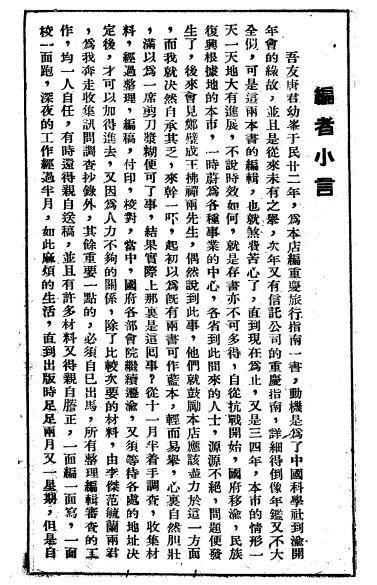 編者小言
吾友唐君幼峯于民廿二年，為本店編重慶旅行指南一書，動機是為了中國科學社到渝開
年會的緣故，並且是從來未有之舉，次年又有信託公司的重慶指南，詳細得倒像年鑑又不大
全似，可是這兩本書的編輯，也就煞費苦心了，直到現在為止，又是三四年，本市的情形一
天一天地大有進展，不說時效如何，就是存書亦不可多得，自從抗戰開始，國府移渝，民族
復興根據地的本市，一時蔚為各種事業的中心，各省到此間來的人士，源源不絕，問題便發
生了，後來會見鄭璧成王拂禪兩先生，偶然說到此事，他們就鼓勵本店應該盡力於這一方面
，而我就決然自承其乏，來幹一吓，起初以為既有兩書可作藍本，輕而易舉，心裏自然胆壯
，滿以為一席剪刀漿糊便可了事，結果實際上那裏是這囘事？從十一月半着手調查，收集材
料，經過整理，編稿，付印，校對，當中，國府各部會院繼續遷渝，又須等待各處的地址決
定後，才可以加得進去，又因為人力不夠的關係，除了比較次要的材料，由李傑范毓蘭兩君
，為我奔走收集訊問調查抄錄外，其餘重要一點的，必須自己出馬，所有整理編輯審查的工
作，均一人自任，有時還得親自送稿，並且有許多材料又得親自謄正，一面編一面寫，一面
校一面跑，深夜的工作經過半月，如此麻煩的生活，直到出版時足足兩月又一星期，但是自